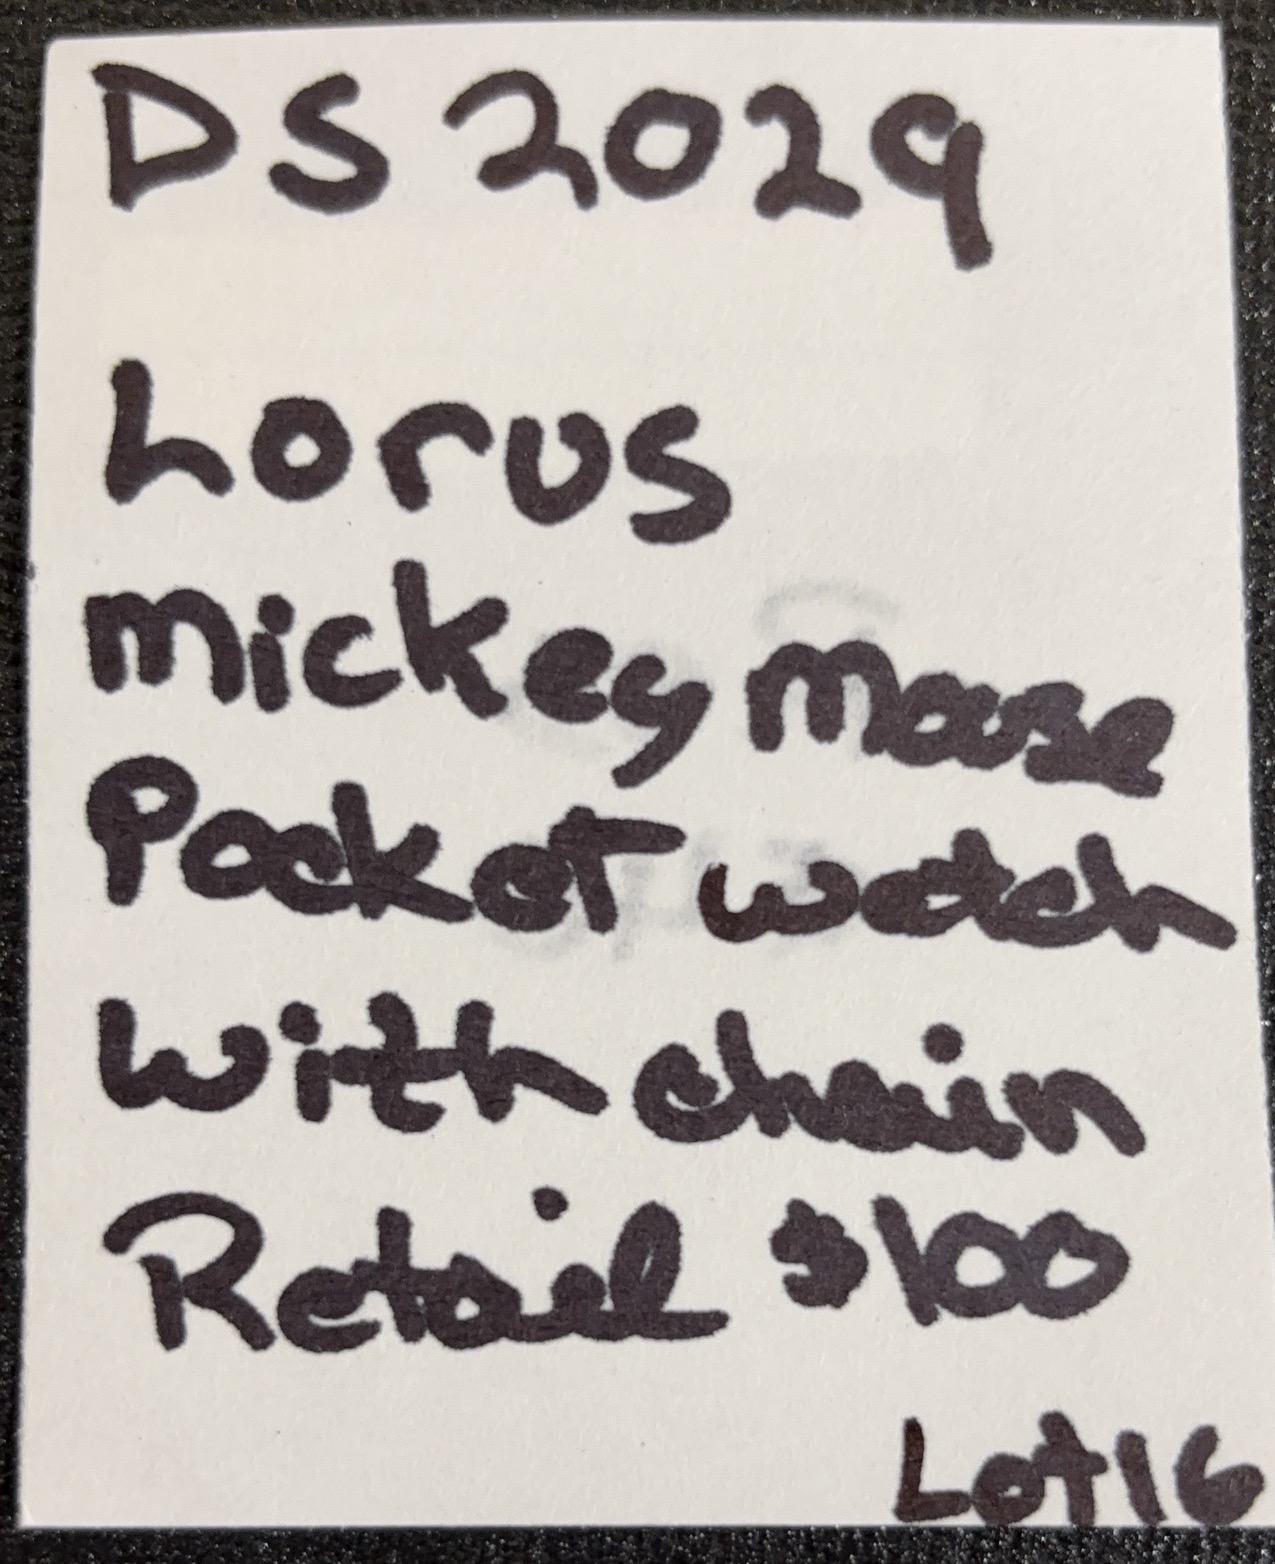 DS 2029
Lorus
mickey mouse
Pocket watch
with chain
Retail $100
Lot 16